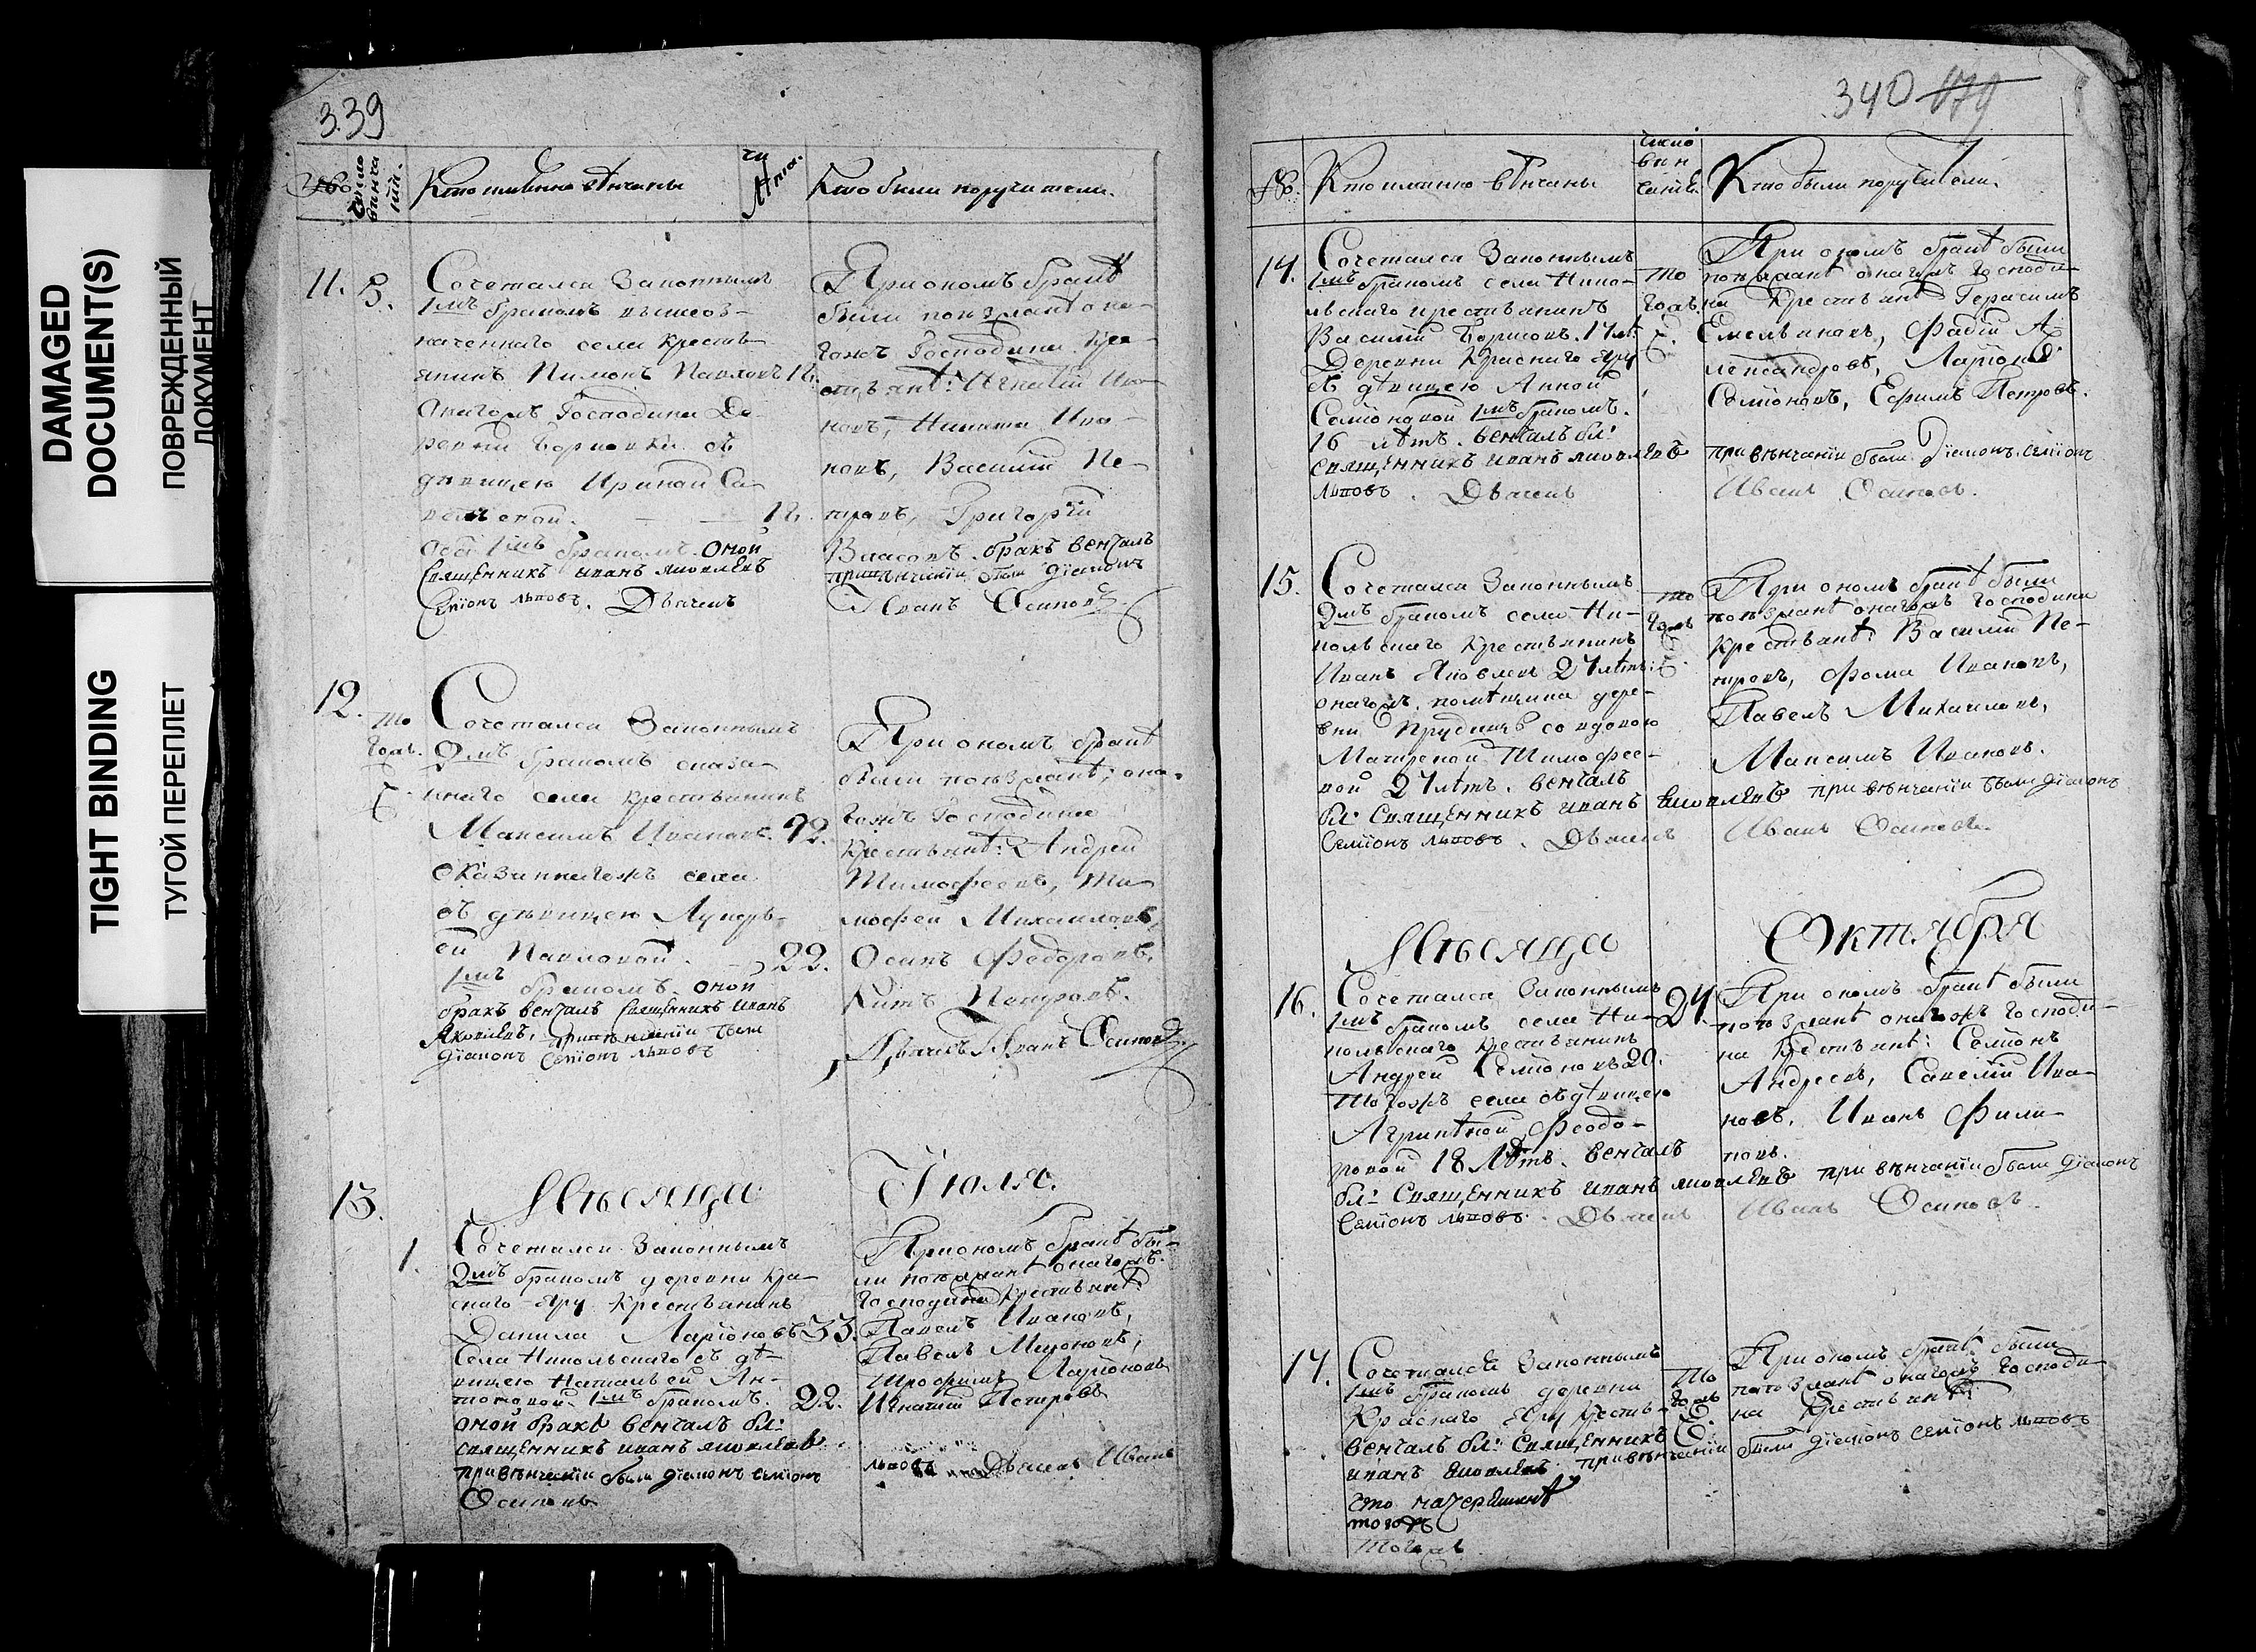 DAMAGED
DOCUMENT(S)
ПОВРЕЖДЕННЫЙ
ДОКУМЕНТ
TIGHT BINDING
ТУГОЙ ПЕРЕПЛЕТ
339
число
венча
ний.
Кто именно вѣнчаны
Лѣта.
Кто были поручители.
11.
Сочетался Законнымъ
1мъ бракомъ
села крестья
янинъ Пимонъ Павловъ 18.
Господина Де
ревни съ
дѣвицею Ириной Са
18.
Оба 1мъ бракомъ. оной
Священникъ иванъ яковлевъ
Семіонъ львовъ. Дьячекъ
При ономъ бракѣ
были поѣзжанѣ она
гожъ Господина Кре
стьянѣ: Игнатій Ива
новъ, Никита Ива
новъ, Василій Пе
тровъ, Григорій
Власовъ. бракъ венчалъ
при вѣнчаніи были діаконъ
Иванъ Осиповъ
12.
то
гожъ.
Сочетался Законнымъ
2мъ бракомъ сказа
ннаго села крестьянинъ
Максимъ Ивановъ.
сказаннагожъ села
съ дѣвицею Лукерь
ей Павловой. 22.
1мъ бракомъ. оной
бракъ венчалъ Священникъ иванъ
Яковлевъ, при вѣнчаніи были
діаконъ Семіонъ львовъ
При ономъ бракѣ
были поѣзжанѣ, она
гожъ Господина
крестьянѣ: Андрей
Тимофеевъ, Ти
мофей Михаиловъ,
Осипъ Федоровъ,
Китъ Петровъ.
Дьячекъ Иванъ Осиповъ
13.
Мѣсяца Іюля.
1.
Сочетался Законнымъ
2мъ бракомъ деревни Кра
снаго Яру Крестьянинъ
Данила Ларіоновъ 33.
Села Никольскаго съ дѣ
вицею Натальей Ан
тоновой 1мъ бракомъ. 22.
оной бракъ венчалъ бл:
священникъ иванъ яковлевъ
при вѣнчаніи были діаконъ семіонъ
Осиповъ
При ономъ бракѣ бы
ли поѣзжанѣ онагожъ
господина Крестьянѣ:
Павелъ Ивановъ,
Павелъ Мироновъ,
Трофимъ Ларіоновъ
Игнатій Петровъ
львовъ Дьячекъ Иванъ
340 179
№.
Кто именно вѣнчаны
число
вен
чанiе.
Кто были поручители.
14.
Сочетался Законнымъ
1мъ бракомъ села Нико
льскаго крестьянинъ
Василій Борисовъ. 17 лѣт.
Деревни Краснаго Яру
съ дѣвицею Анной
Семіоновой 1мъ бракомъ.
16 лѣтъ. венчалъ бл:
священникъ иванъ яковлевъ
львовъ. Дьячекъ
то
гожъ.
При ономъ бракѣ были
поѣзжанѣ онагожъ Господи
на Крестьянѣ Герасимъ
Емельяновъ, Фадей А
лександровъ, Ларіонъ
Семіоновъ, Ефимъ Петровъ.
при вѣнчаніи были Діаконъ, семіонъ
Иванъ Осиповъ.
15.
Сочетался Законнымъ
2мъ бракомъ села Ни
кольскаго Крестьянинъ
Иванъ Яковлевъ 27 лѣтъ:
онагожъ помѣщика дере
вни Прудищъ со вдовою
Матреной Тимофее
вой 27 лѣтъ. венчалъ
бл: Священникъ иванъ яковлевъ при вѣнчаніи были діаконъ
Семіонъ львовъ. Дьячекъ Иванъ Осиповъ.
то
гожъ
При ономъ бракѣ были
поѣзжанѣ онагожъ господина
Крестьянѣ: Василій Пе
тровъ, Фома Ивановъ,
Павелъ Михаиловъ,
Максимъ Ивановъ.
Мѣсяца Октября
16.
Сочетался Законнымъ
1мъ бракомъ села Ни
кольскаго Крестьянинъ
Андрей Семіоновъ 20.
Тогожъ села съ дѣвицею
Агрипѣной Феодо
ровой 18 лѣтъ. венчалъ
бл: Священникъ иванъ яковлевъ при вѣнчаніи были діаконъ
Семіонъ львовъ. Дьячекъ Иванъ Осиповъ.
24.
При ономъ бракѣ были
поѣзжанѣ онагожъ Господи
на Крестьянѣ: Семіонъ
Андреевъ, Савелій Ива
новъ, Иванъ Фили
повъ.
17.
Сочетался Законнымъ
1мъ бракомъ деревни
Краснаго Яру Кресть
венчалъ бл: Священникъ
иванъ яковлевъ при вѣнчаніи были діаконъ семіонъ львовъ
тогожъ
то
гожъ
При ономъ бракѣ были
поѣзжанѣ онагожъ Господи
на Крестьянѣ: